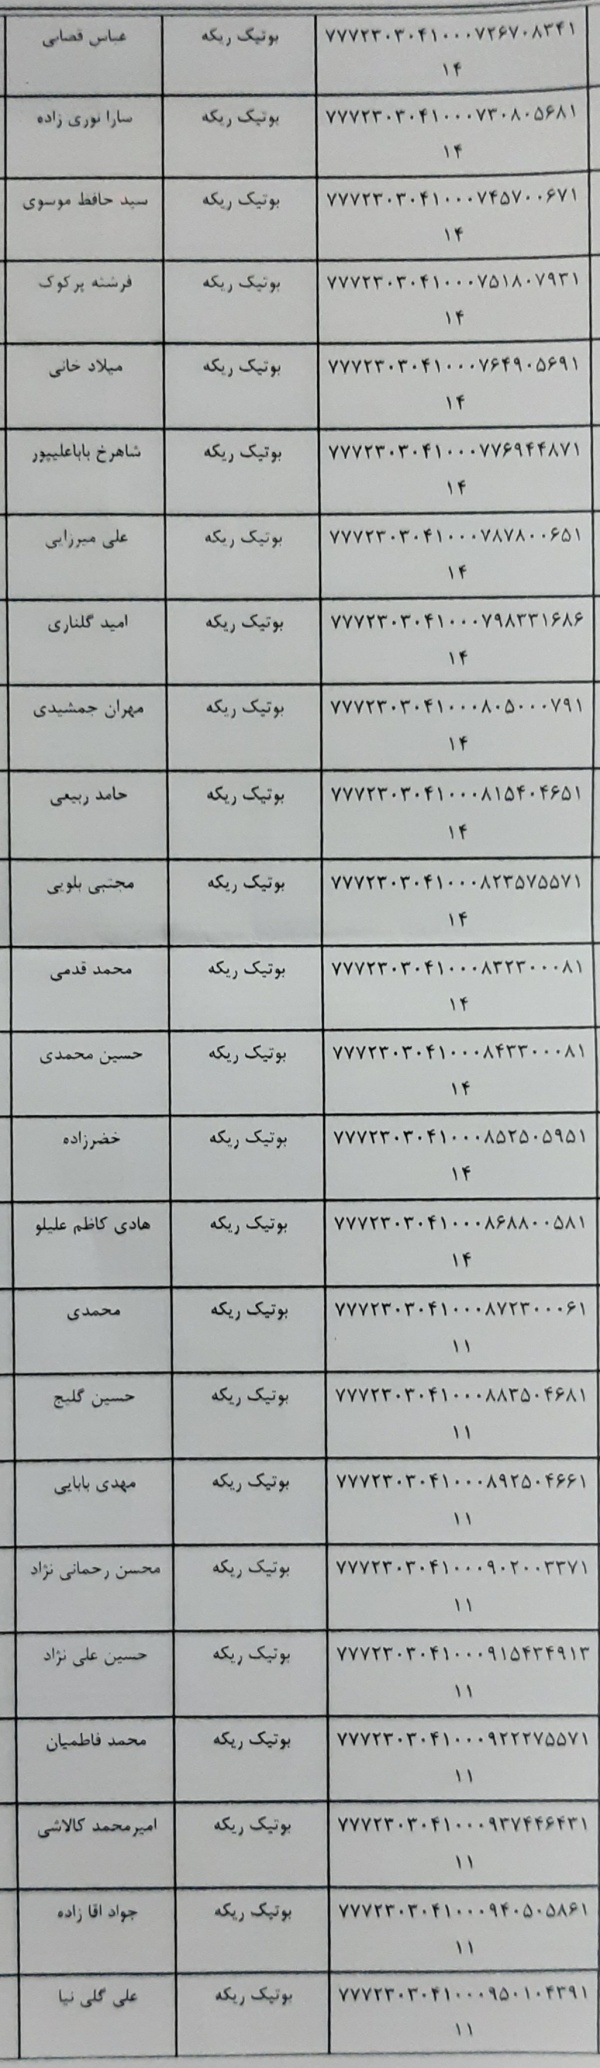 ۷۷۷۲۳۰۳۰۴۱۰۰۰۷۲۶۷۰۸۳۴۱ بوتیک ریکه عباس قصابی
۱۴
۷۷۷۲۳۰۳۰۴۱۰۰۰۷۳۰۸۰۵۶۸۱ بوتیک ریکه سارا نوری زاده
۱۴
۷۷۷۲۳۰۳۰۴۱۰۰۰۷۴۵۷۰۰۶۷۱ بوتیک ریکه سید حافظ موسوی
۱۴
۷۷۷۲۳۰۳۰۴۱۰۰۰۷۵۱۸۰۷۹۳۱ بوتیک ریکه فرشته پرکوک
۱۴
۷۷۷۲۳۰۳۰۴۱۰۰۰۷۶۴۹۰۵۶۹۱ بوتیک ریکه میلاد خانی
۱۴
۷۷۷۲۳۰۳۰۴۱۰۰۰۷۷۶۹۴۴۸۷۱ بوتیک ریکه شاهرخ باباعلیپور
۱۴
۷۷۷۲۳۰۳۰۴۱۰۰۰۷۸۷۸۰۰۶۵۱ بوتیک ریکه علی میرزایی
۱۴
۷۷۷۲۳۰۳۰۴۱۰۰۰۷۹۸۳۳۱۶۸۶ بوتیک ریکه امید گلناری
۱۴
۷۷۷۲۳۰۳۰۴۱۰۰۰۸۰۵۰۰۰۷۹۱ بوتیک ریکه مهران جمشیدی
۱۴
۷۷۷۲۳۰۳۰۴۱۰۰۰۸۱۵۴۰۴۶۵۱ بوتیک ریکه حامد ربیعی
۱۴
۷۷۷۲۳۰۳۰۴۱۰۰۰۸۲۳۵۷۵۵۷۱ بوتیک ریکه مجتبی بلویی
۱۴
۷۷۷۲۳۰۳۰۴۱۰۰۰۸۳۲۳۰۰۰۸۱ بوتیک ریکه محمد قدمی
۱۴
۷۷۷۲۳۰۳۰۴۱۰۰۰۸۴۳۳۰۰۰۸۱ بوتیک ریکه حسین محمدی
۱۴
۷۷۷۲۳۰۳۰۴۱۰۰۰۸۵۲۵۰۵۹۵۱ بوتیک ریکه خضرزاده
۱۴
۷۷۷۲۳۰۳۰۴۱۰۰۰۸۶۸۸۰۰۵۸۱ بوتیک ریکه هادی کاظم علیلو
۱۴
۷۷۷۲۳۰۳۰۴۱۰۰۰۸۷۲۳۰۰۰۶۱ بوتیک ریکه محمدی
۱۱
۷۷۷۲۳۰۳۰۴۱۰۰۰۸۸۳۵۰۴۶۸۱ بوتیک ریکه حسین گلیج
۱۱
۷۷۷۲۳۰۳۰۴۱۰۰۰۸۹۲۵۰۴۶۶۱ بوتیک ریکه مهدی بابایی
۱۱
۷۷۷۲۳۰۳۰۴۱۰۰۰۹۰۲۰۰۳۳۷۱ بوتیک ریکه محسن رحمانی نژاد
۱۱
۷۷۷۲۳۰۳۰۴۱۰۰۰۹۱۵۴۳۴۹۱۳ بوتیک ریکه حسین علی نژاد
۱۱
۷۷۷۲۳۰۳۰۴۱۰۰۰۹۲۲۲۷۵۵۷۱ بوتیک ریکه محمد فاطمیان
۱۱
۷۷۷۲۳۰۳۰۴۱۰۰۰۹۳۷۴۴۶۴۳۱ بوتیک ریکه امیرمحمد کالاشی
۱۱
۷۷۷۲۳۰۳۰۴۱۰۰۰۹۴۰۵۰۵۸۶۱ بوتیک ریکه جواد اقا زاده
۱۱
۷۷۷۲۳۰۳۰۴۱۰۰۰۹۵۰۱۰۴۳۹۱ بوتیک ریکه علی گلی نیا
۱۱